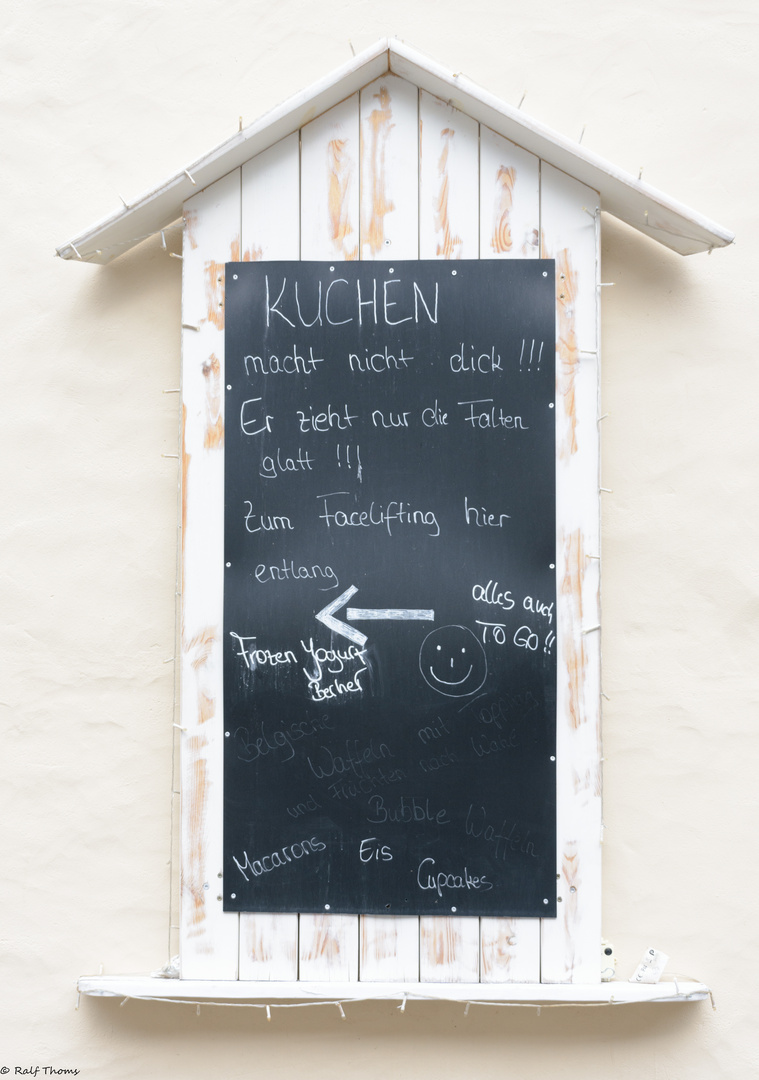 KUCHEN
macht nicht dick !!!
Er zieht nur die Falten
glatt !!!
Zum Facelifting hier
entlang
alles auch
TO GO !!
Frozen Yogurt
Becher
Belgische
Waffeln mit
und Früchten nach
Bubble Waffeln
Macarons Eis
Cupcakes
© Ralf Thoms